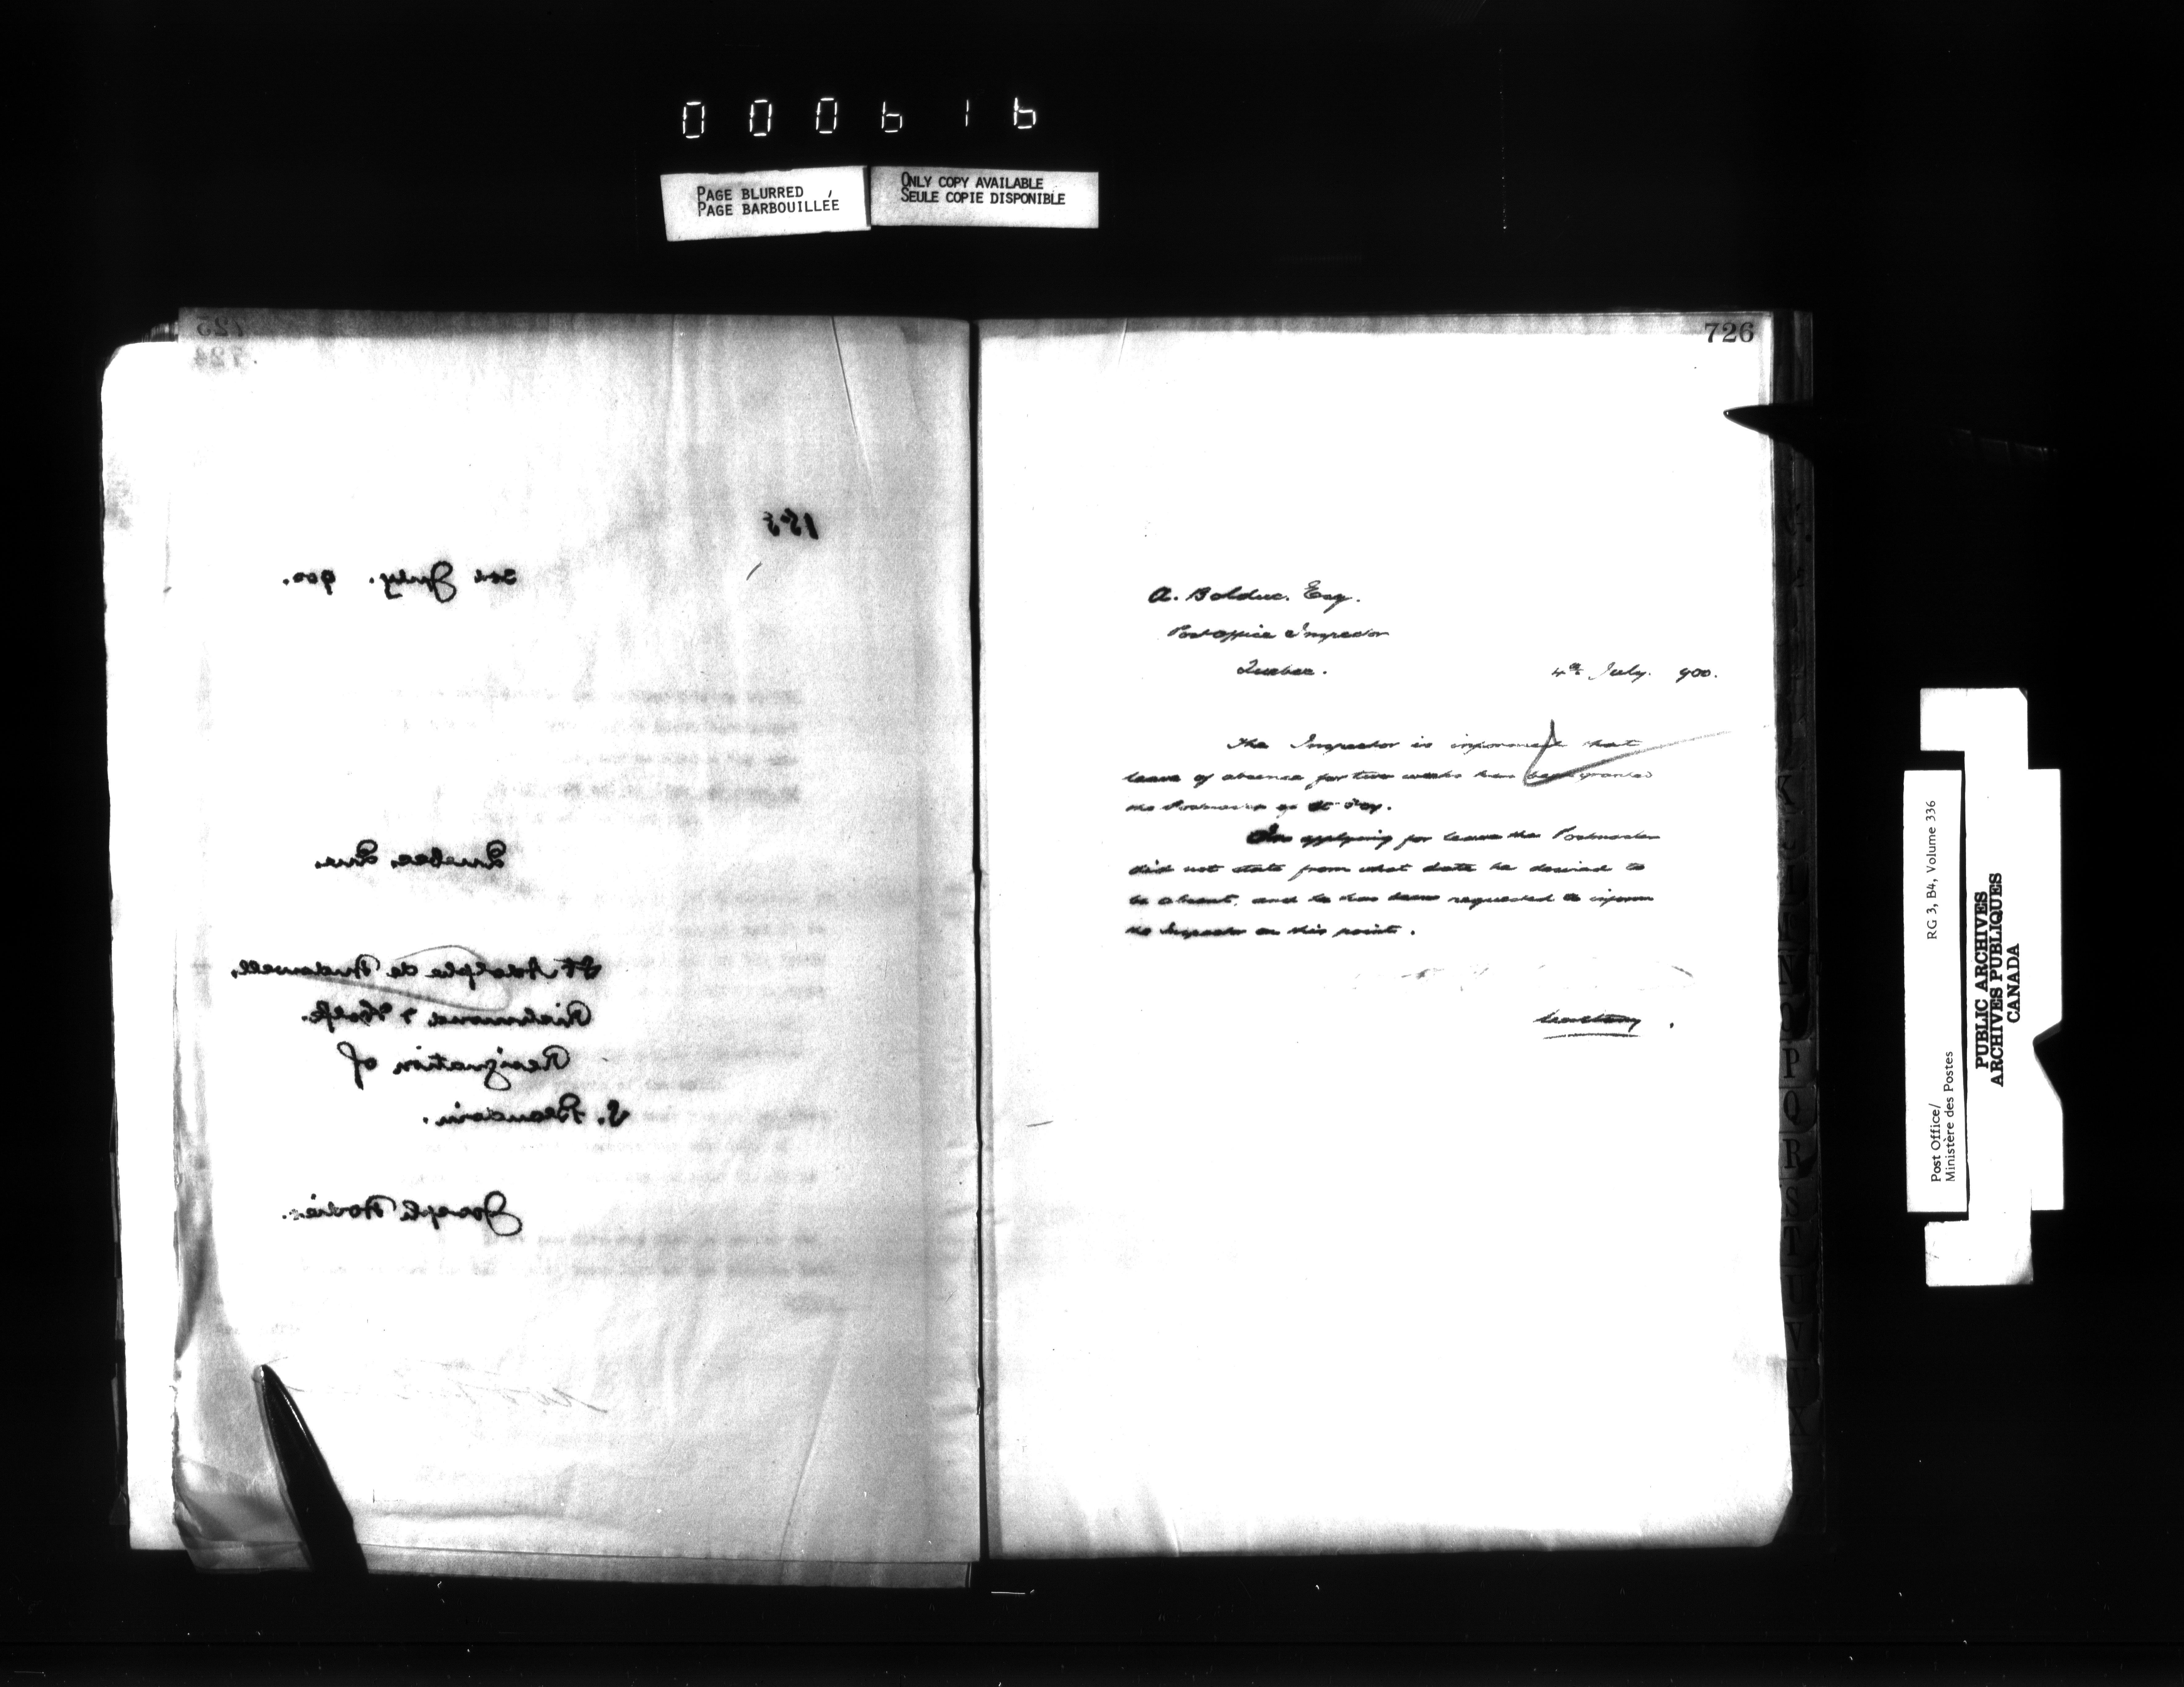 000616
PAGE BLURRED
PAGE BARBOUILLÉE
ONLY COPY AVAILABLE
SEULE COPIE DISPONIBLE
725
724
155
July. 900.
Quebec, Que.
St Adolphe de Dudswell,
Richmond & Wolfe.
Resignation of
S. Beaudoin.
Joseph
726
A. Bolduc. Esq.
Post Office Inspector
Quebec.
4th July. 900.
The Inspector is informed that
leave of absence for two weeks has been granted
the Postmaster of
In applying for leave the Postmaster
did not state from what date he desired to
be absent, and he has been requested to inform
the Inspector on this point.
Secretary.
K
N
P
Q
R
S
T
V
X
Post Office/
Ministère des Postes
RG 3, B4, Volume 336
PUBLIC ARCHIVES
ARCHIVES PUBLIQUES
CANADA